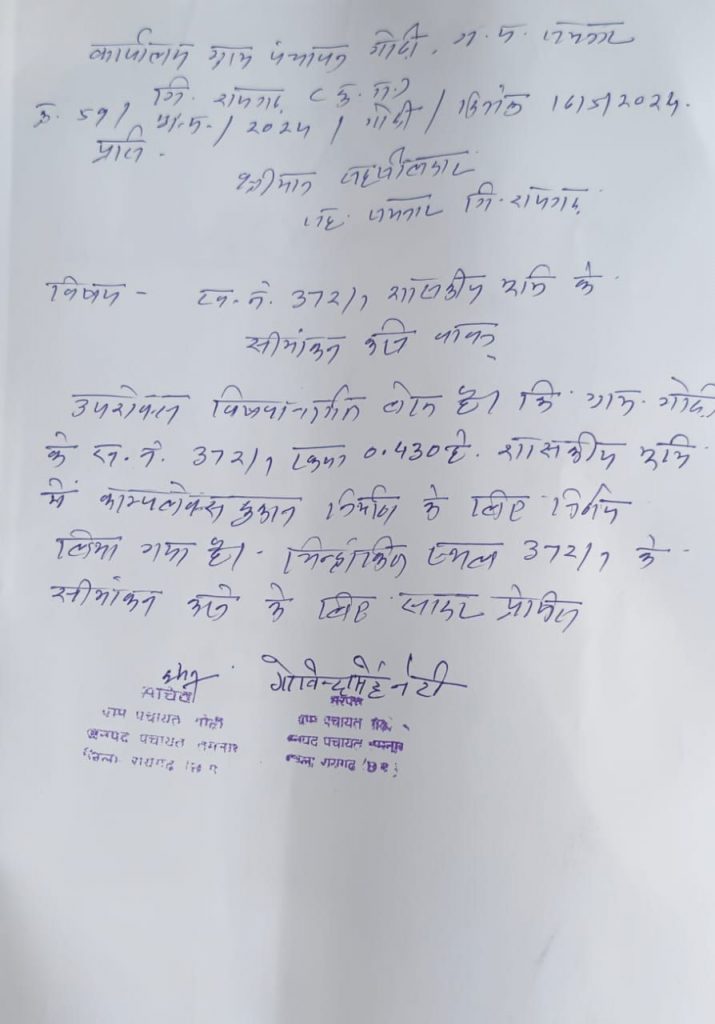 कार्यालय ग्राम पंचायत गोढ़ी, ज.प. तमनार
जि. रायगढ़ (छ.ग.)
क्र. 59/ ग्रा.पं./ 2024 / गोढ़ी / दिनांक 16/5/2024.
प्रति -
श्रीमान तहसीलदार
तह. तमनार जि. रायगढ़
विषय - ख.नं. 372/1 शासकीय भूमि के
सीमांकन करने बाबत्
उपरोक्त विषयांतर्गत लेख है। कि ग्राम गोढ़ी
के ख.नं. 372/1 रकबा 0.430 हे. शासकीय भूमि
में काम्पलेक्स दुकान निर्माण के लिए निर्णय
लिया गया है। चिन्हांकित स्थल 372/1 के
सीमांकन करने के लिए सादर प्रेषित
सचिव
ग्राम पंचायत गोढ़ी
जनपद पंचायत तमनार
जिला रायगढ़
सरपंच
ग्राम पंचायत गोढ़ी
जनपद पंचायत तमनार
जिला रायगढ़